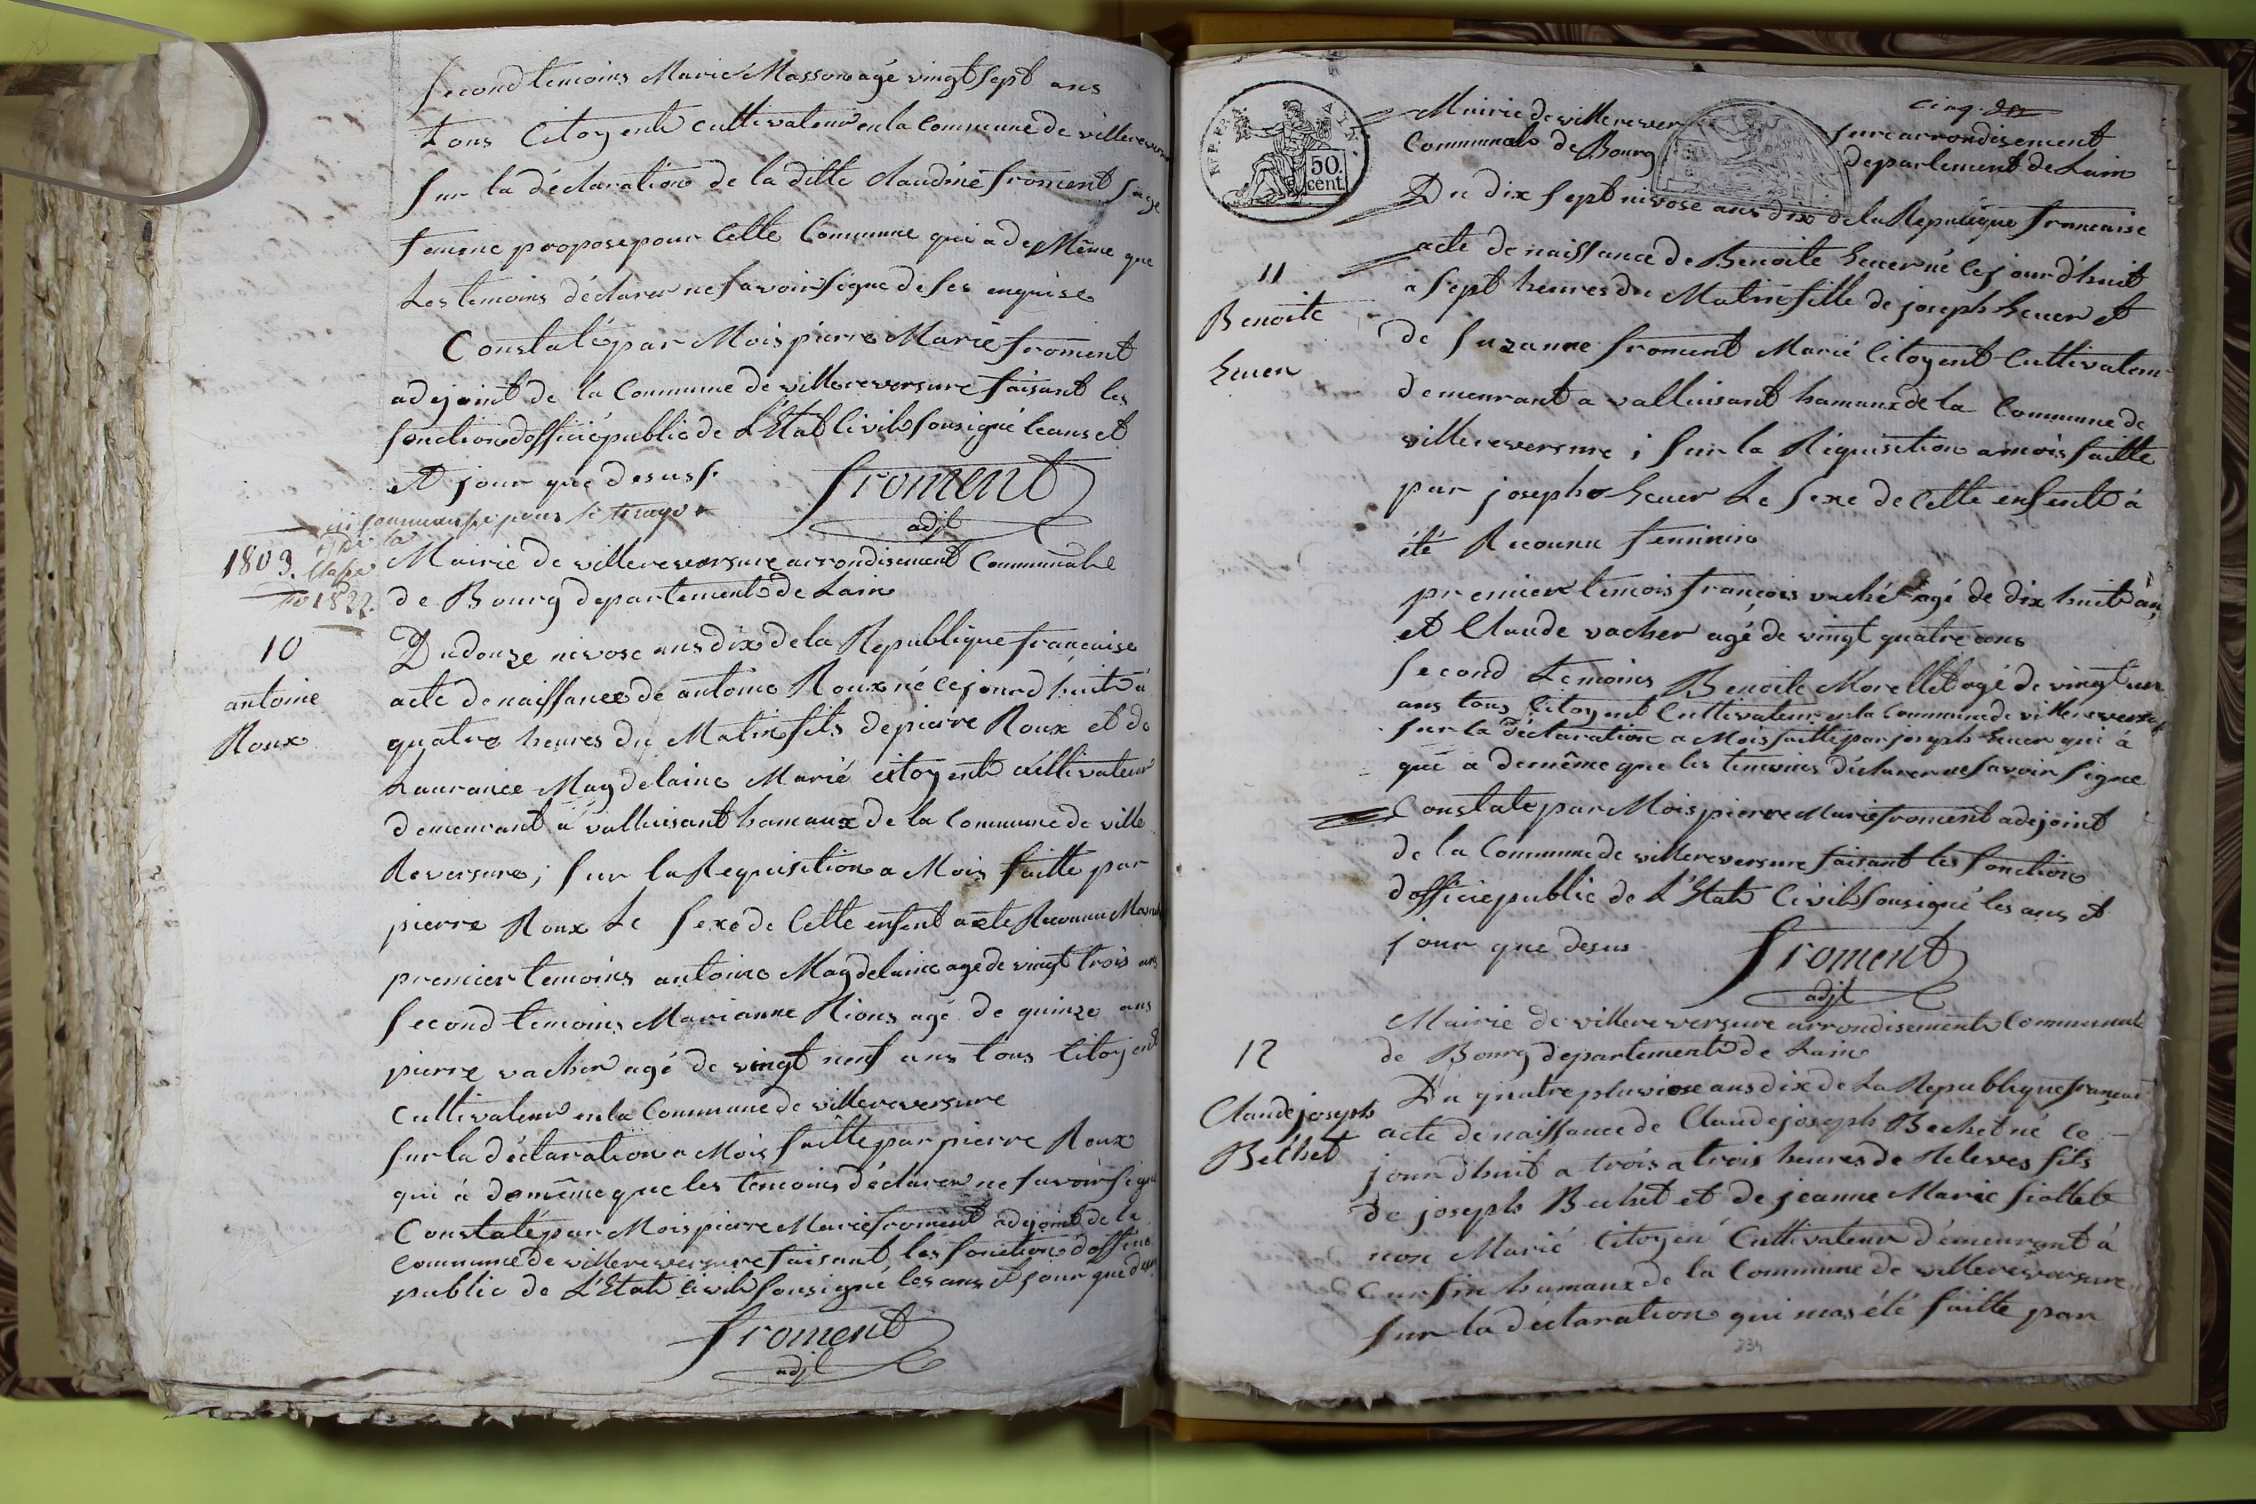 second temoins Marie Masson agé vingt sept ans
tous Citoyent cultivateur en la Commune de villerevers
sur la déclaration de la ditte claudine froment sage
femme propose pour Cette Commune qui a de Même que
Les temoins déclarer ne savoir signe de ses enquise
Constaté par Mois pierre Marie froment
adejoint de la Commune de villereversure faisant les
fonction d'officié public de L'Etat Civil sousigné le ans et
et jour que desus s.
froment
adjt
1803.
1822.
Mairie de villereversure arrondisement Communale
de Bourg departement de Lain
10
antoine
Roux
Du douze nivose ans dix de la Republique francaise
acte de naissance de antoine Roux né ce jourd huit à
quatre heures du Matin fils de pierre Roux et de
Laurance Magdelaine Marié citoyent cultivateur
demeurant a valluisant hamaux de la Commune de ville
Reversure; sur la Requisition a Mois faitte par
pierre Roux Le sexe de Cette enfent a ete Reconnu Mas
premier temoins antoine Magdelaine age de vingt trois ans
second temoins Marianne Rions agé de quinze ans
pierre vacher agé de vingt neuf ans tous Citoyent
Cultivateur en la Commune de villereversure
sur la déclaration a Mois faitte par pierre Roux
qui à de même que les temoins déclarer ne savoir signe
Constaté par Mois pierre Marie froment adejoint de la
Commune de villereversure faisant les fonction d'officié
public de L'Etat Civil sousigné les ans et jour que desus
froment
adjt
RÉP. FRA.
50.
cent.
cinq.
Mairie de villerever sure arrondisement
Communale de Bourg departement de Lain
Du dix sept nivose ans dix de la Republique francaise
11
Benoite
acte de naissance de Benoite Heuer né ce jour d'huit
a sept heures du Matin fille de joseph Heuer et
de suzanne froment Marié Citoyent Cultivateur
demeurant a valluisant hamaux de la Commune de
villereversure; sur la Requisition a mois faitte
par joseph Heuer Le sexe de Cette enfent à
été Reconnu feminin
premier temois françois vaché agé de dix huit ans,
et Claude vacher agé de vingt quatre ans
second temoins Benoite Morellet agé de vingt un
ans tous Citoyent Cultivateur en la Commune de villereversur
sur la déclaration a Mois faitte par joseph Heuer qui à
qui a de même que les temoins déclarer ne savoir signe
Constaté par Mois pierre Marie froment adejoint
de la Commune de villereversure faisant les fonction
d'officié public de L'Etat Civil sousigné les ans et
jour que desus
froment
adjt
Mairie de villereversure arrondisement Communale
de Bourg departement de Lain
12
Claude joseph
Béchet
Du quatre pluviose ans dix de La Republique francais
acte de naissance de Claude joseph Bechet né ce
jour d'huit a trois a trois heures de Releves fils
de joseph Bechet et de jeanne Marie fiollet
non Marié Citoyen Cultivateur démeurant à
hamaux de la Commune de villereversure
sur la déclaration qui mas été faitte par
234